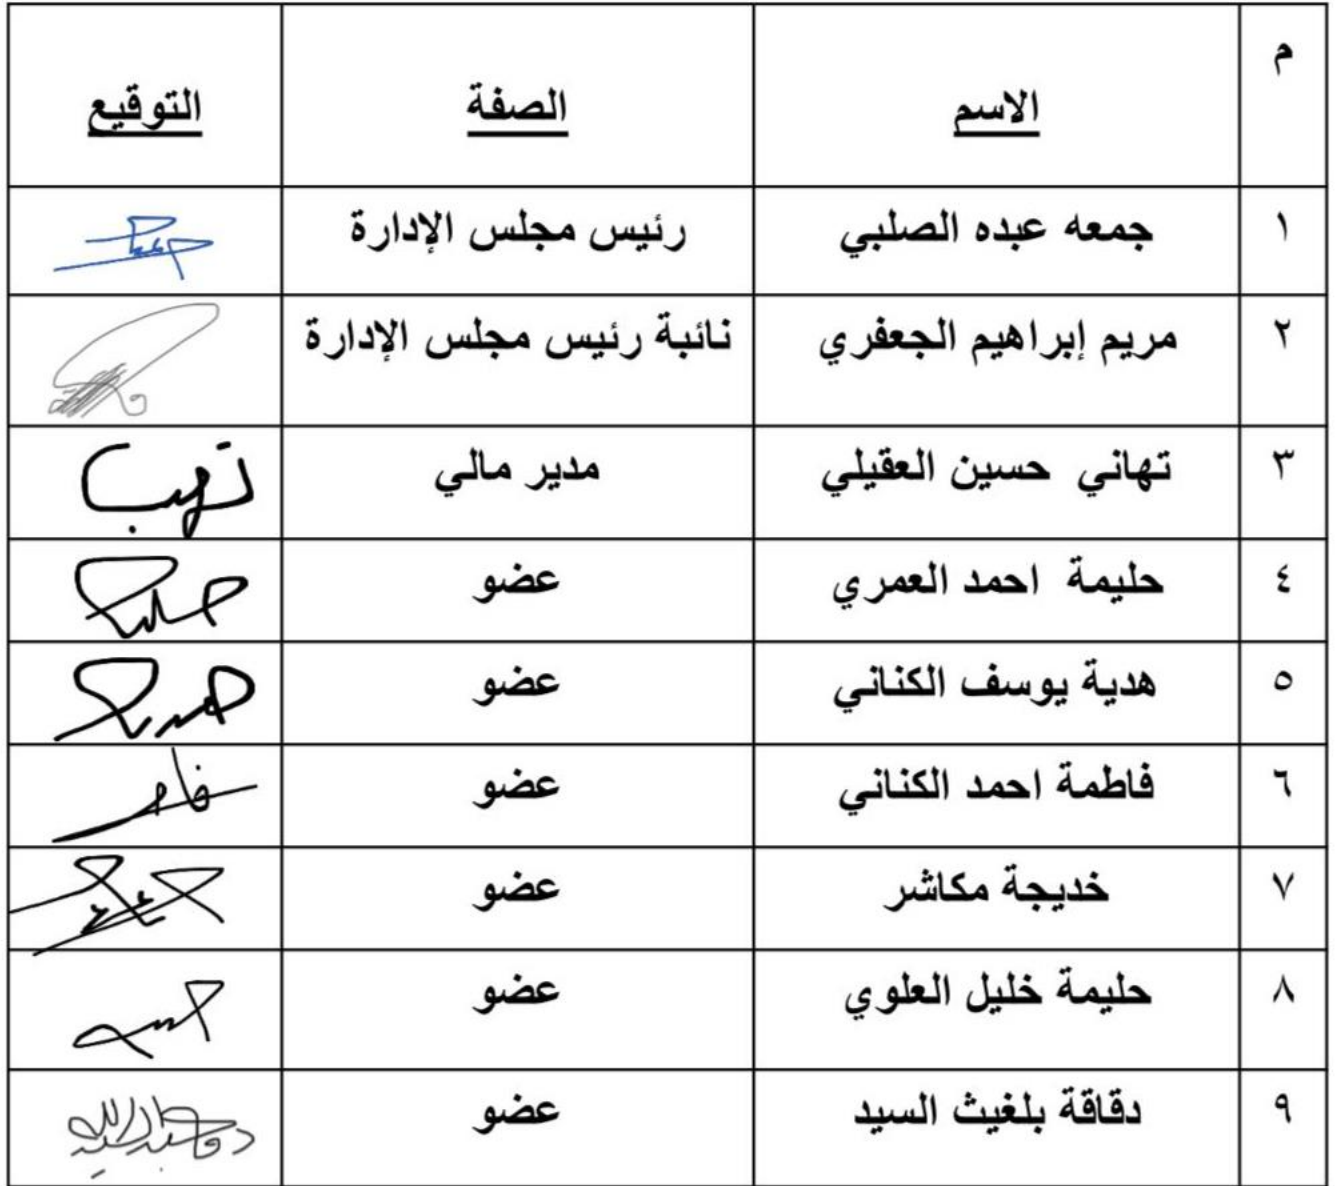 م الاسم الصفة التوقيع
١ جمعه عبده الصلبي رئيس مجلس الإدارة
٢ مريم إبراهيم الجعفري نائبة رئيس مجلس الإدارة
٣ تهاني حسين العقيلي مدير مالي
٤ حليمة احمد العمري عضو
٥ هدية يوسف الكناني عضو
٦ فاطمة احمد الكناني عضو
٧ خديجة مكاشر عضو
٨ حليمة خليل العلوي عضو
٩ دقاقة بلغيث السيد عضو